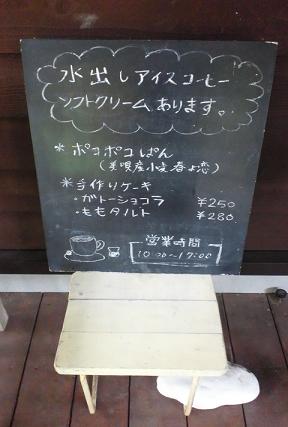 水出しアイスコーヒー
ソフトクリームあります。
*ポコポコぱん
(美唄産小麦春よ恋)
*手作りケーキ
・ガトーショコラ ¥250
・ももタルト ¥280
営業時間
10:00~17:00